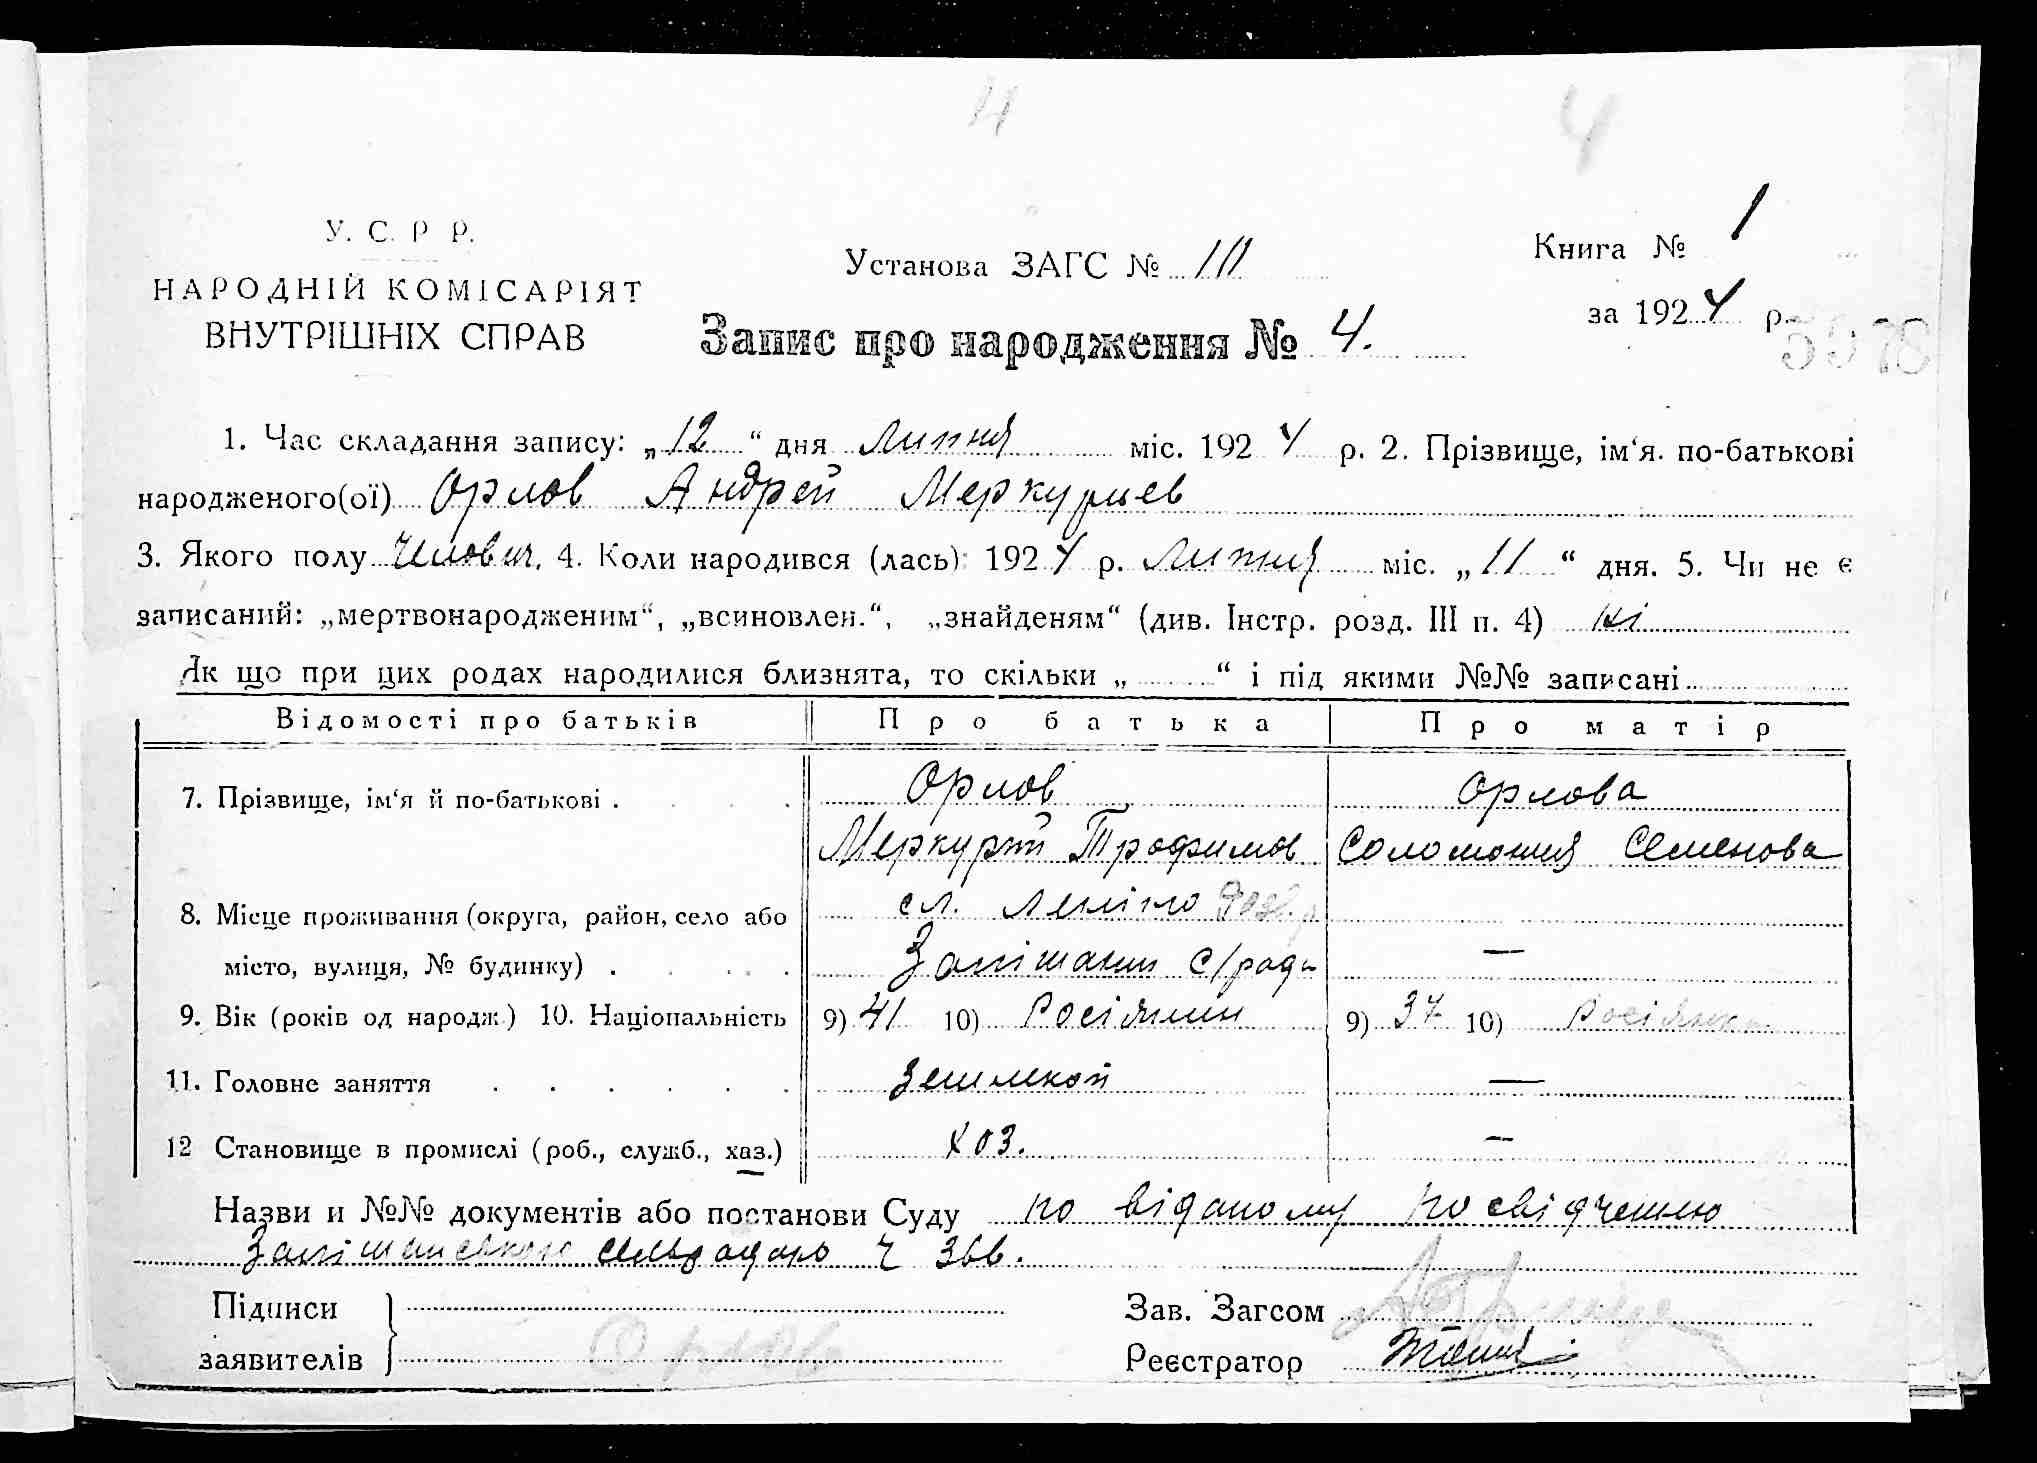 4 4
У. С. Р Р.
НАРОДНІЙ КОМІСАРІЯТ
ВНУТРІШНІХ СПРАВ
Установа ЗАГС №
Книга № 1
за 1924 р.
Запис про народження № 4.
1. Час складання запису: „12“ дня Липня міс. 1924 р. 2. Прізвище, ім‘я. по-батькові
народженого(ої) Орлов Андрей Меркуриев
3. Якого полу Чилович. 4. Коли народився (лась): 1924 р. Липня міс. „11“ дня. 5. Чи не є
записаний: „мертвонародженим“, „всиновлен.“, „знайденям“ (див. Інстр. розд. III п. 4) ні
Як що при цих родах народилися близнята, то скільки „ “ і під якими №№ записані
Відомості про батьків Про батька Про матір
7. Прізвище, ім‘я й по-батькові . Орлов Орлова
Меркурий Трофимов Соломония Семенова
8. Місце проживання (округа, район, село або сл.
місто, вулиця, № будинку) . с/ради —
9. Вік (років од народж.) 10. Національність 9) 41 10) Росіянин 9) 37 10) Росіянка
11. Головне заняття —
12 Становище в промислі (роб., служб., хаз.) хоз. —
Назви и №№ документів або постанови Суду по віданому посвідченню
ч 366.
Підписи
заявителів
Орлов
Зав. Загсом
Реєстратор